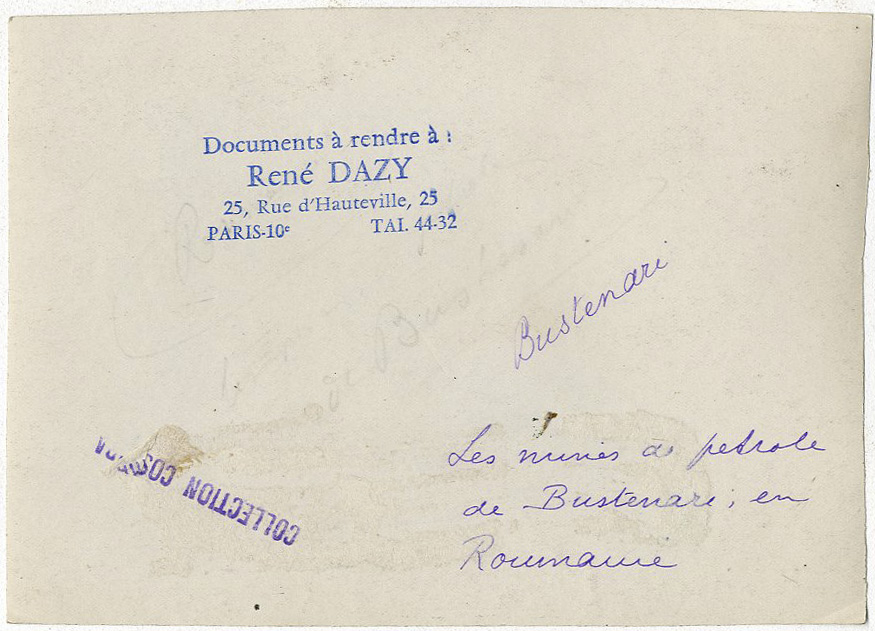 Documents à rendre à :
René DAZY
25, Rue d'Hauteville, 25
PARIS-10e TAI. 44-32
Bustenari
de Bustenari
COLLECTION
Les mines de petrole
de Bustenari, en
Roumanie